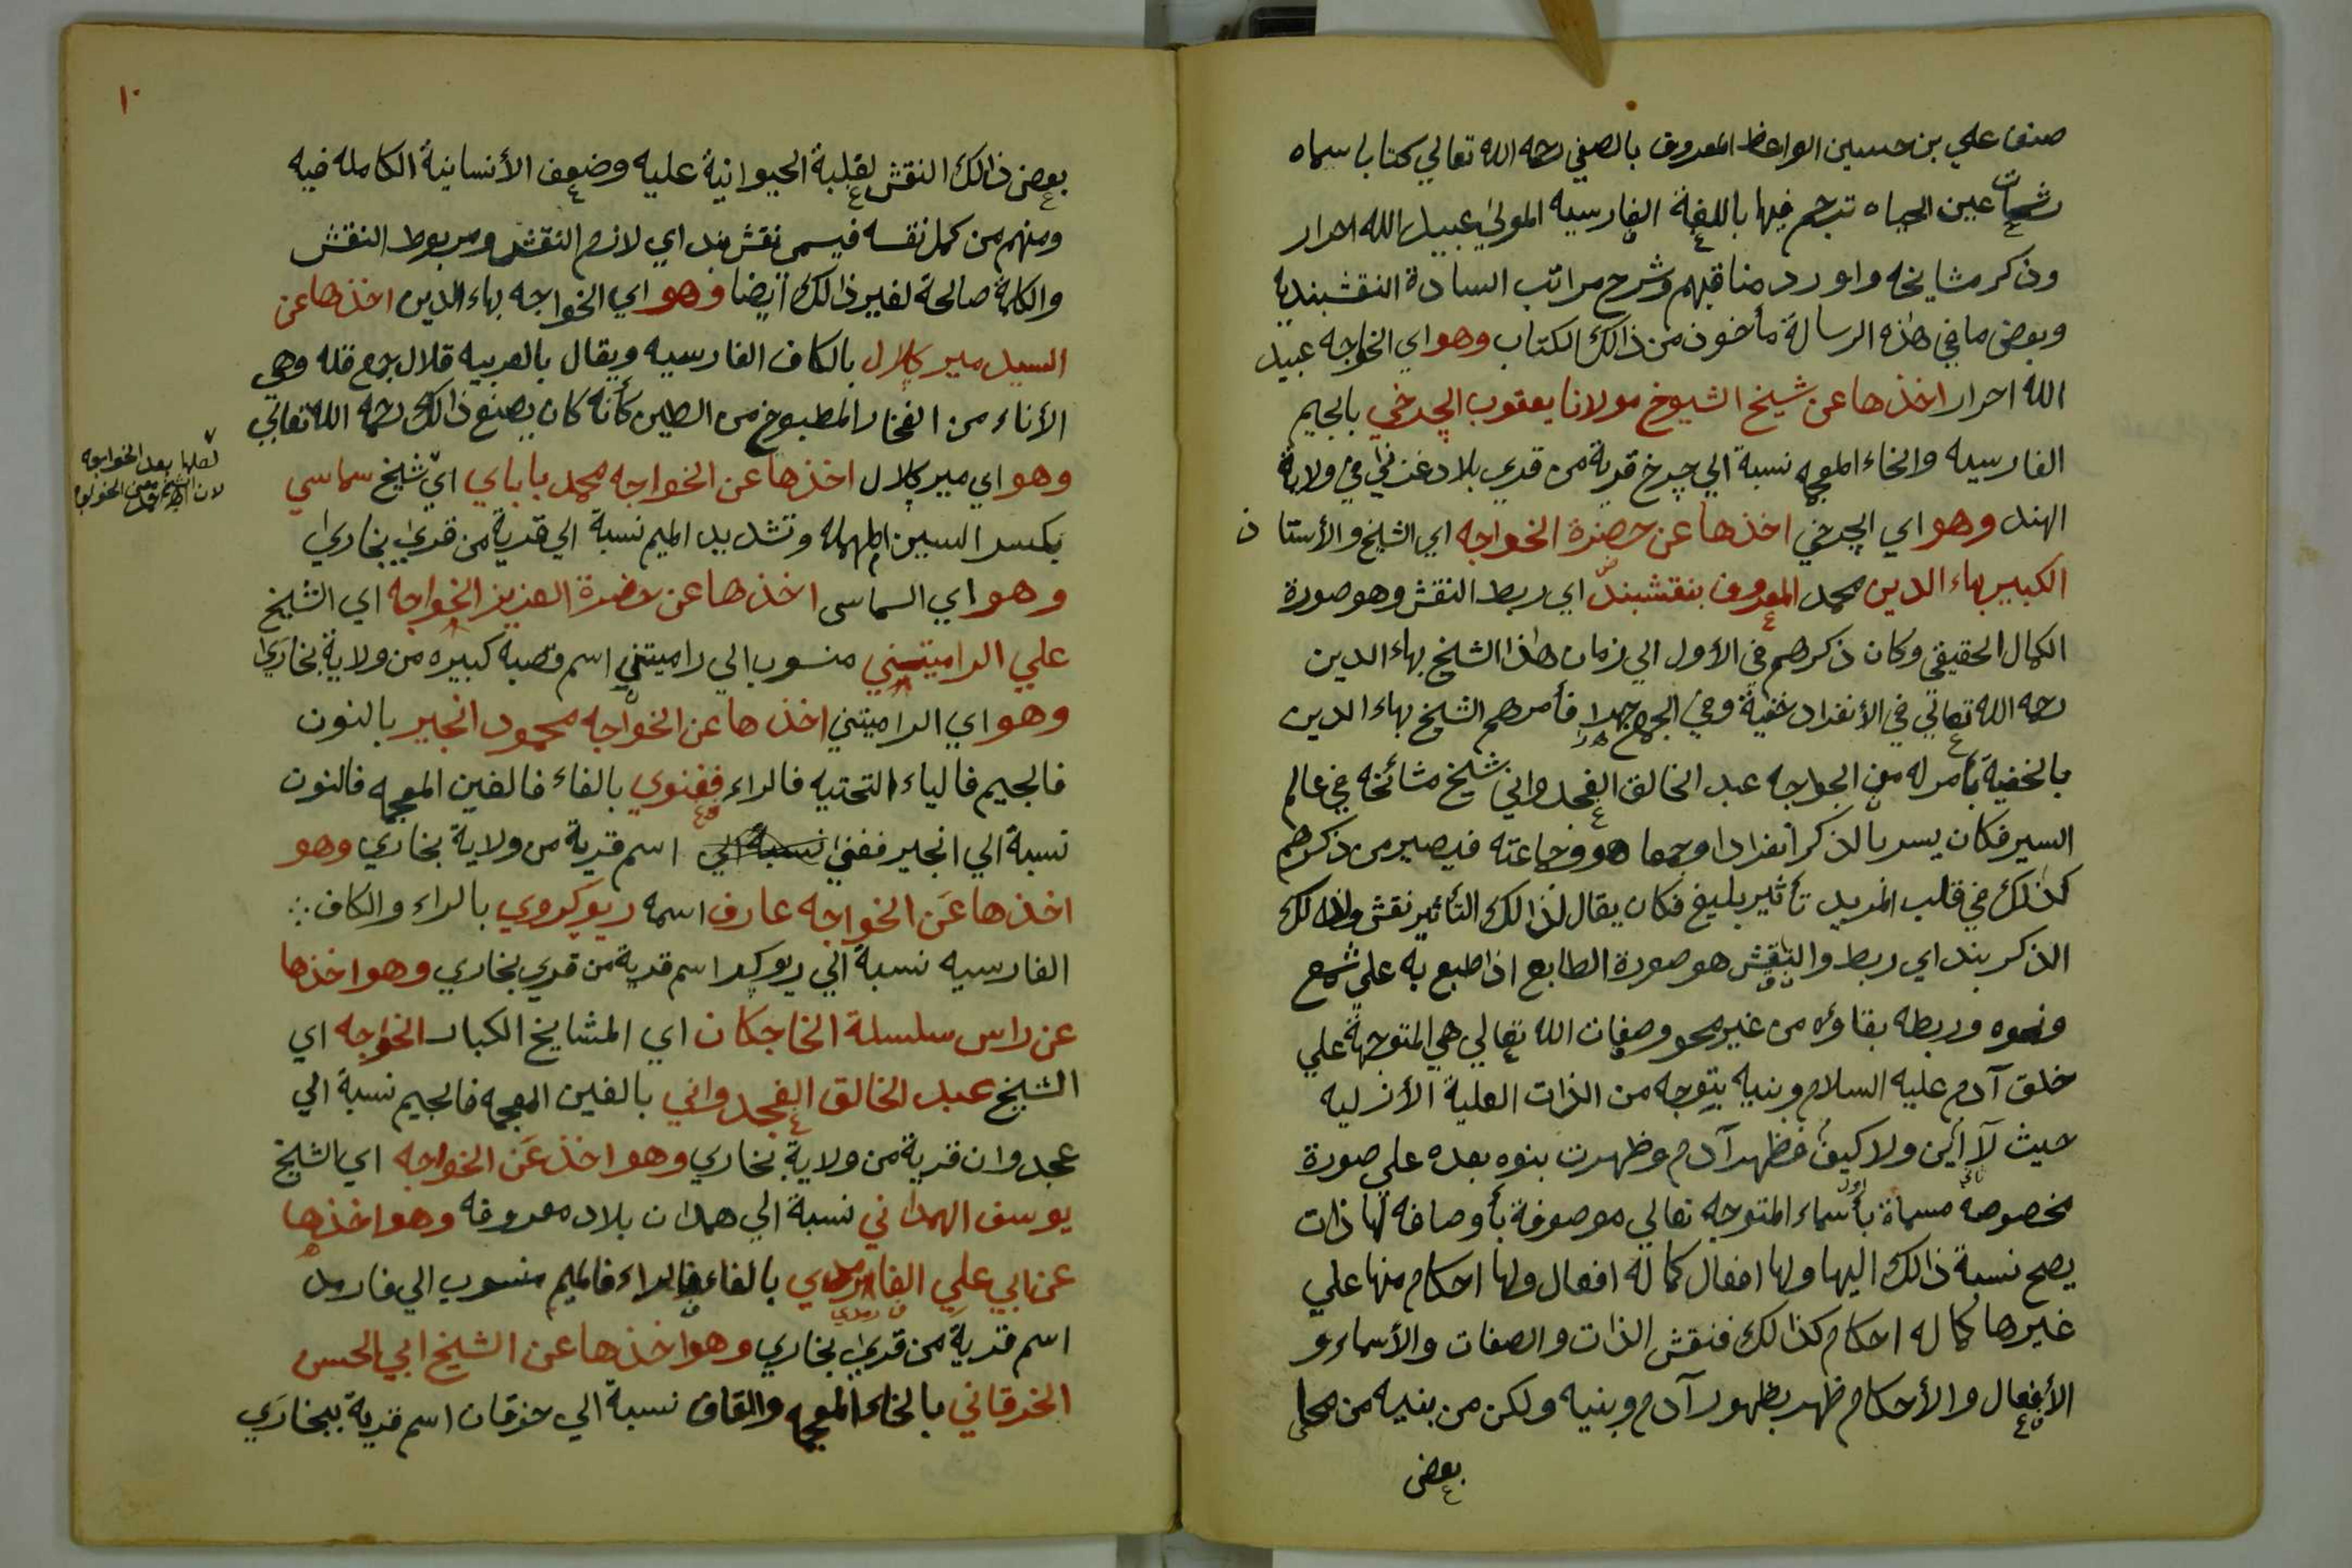 صنف علي بن حسين الواعظ المعروف بالصفي رحمه الله تعالي كتابا سماه
رشحات عين الحياه ترجم فيها باللغة الفارسيه المولي عبيد الله احرار
وذكر مشايخه واورد مناقبهم وشرح مراتب السادة النقشبنديه
وبعض ما في هذه الرسالة مأخوذ من ذالك الكتاب وهو اي الخواجه عبيد
الله احرار اخذها عن شيخ الشيوخ مولانا يعقوب الچرخي بالجيم
الفارسيه والخاء المعجمه نسبة الي چرخ قرية من قري بلاد غزني في ولاية
الهند وهو اي الچرخي اخذها عن حضرة الخواجه اي الشيخ والأستاذ
الكبير بهاء الدين محمد المعروف بنقشبند اي ربط النقش وهو صورة
الكمال الحقيقي وكان ذكرهم في الأول الي زمان هذا الشيخ بهاء الدين
رحمه الله تعالي في الأنفراد خفية وفي الجمع جهرا فأمرهم الشيخ بهاء الدين
بالخفية بأمر له من الخواجه عبد الخالق الغجدواني شيخ مشائخه في عالم
السير فكان يسر بالذكر أنفرادا وجمعا هو وجماعته فيصير من ذكرهم
كذلك في قلب المريد تأثير بليغ فكان يقال لذالك التأثير نقش ولذالك
الذكر بند اي ربط والنقش هو صورة الطابع اذا طبع به علي شمع
ونحوه وربطه بقاؤه من غير محو وصفات الله تعالي هي المتوجهة علي
خلق آدم عليه السلام وبنيه بتوجه من الذات العلية الأزليه
حيث لا أين ولا كيف فظهر آدم وظهرت بنوه بعده علي صورة
مخصوصه مسماة بأسماء المتوجه تعالي موصوفة بأوصافه لها ذات
يصح نسبة ذالك اليها ولها افعال كما له افعال ولها احكام منها علي
غيرها كما له احكام كذالك فنقش الذات والصفات والأسماء و
الأفعال والأحكام ظهر بظهور آدم وبنيه ولكن من بنيه من محا
بعض
١٠
بعض ذالك النقش لغلبة الحيوانية عليه وضعف الأنسانية الكامله فيه
ومنهم من كمل نقسه فيسمى نقش بند اي لازم النقش ومربوط النقش
والكلمة صالحة لغير ذالك أيضا وهو اي الخواجه بهاء الدين اخذها عن
السيد مير كلال بالكاف الفارسيه ويقال بالعربيه قلال جمع قله وهي
الأناء من الفخار المطبوخ من الطين كأنه كان يصنع ذالك رحمه الله تعالي
وهو اي مير كلال اخذها عن الخواجه محمد باباي اي شيخ سماسي
بكسر السين المهمله وتشديد الميم نسبة الي قرية من قري بخاري
وهو اي السماسى اخذها عن حضرة العزيز الخواجه اي الشيخ
علي الراميتني منسوب الي راميتني اسم قصبه كبيره من ولاية بخاري
وهو اي الراميتني اخذها عن الخواجه محمود انجير بالنون
فالجيم فالياء التحتيه فالراء فغنوي بالفاء فالغين المعجمه فالنون
نسبة الي انجير فغني نسبة الي اسم قرية من ولاية بخاري وهو
اخذها عن الخواجه عارف اسمه ريوكروي بالراء والكاف
الفارسيه نسبة الي ريوكر اسم قرية من قري بخاري وهو اخذها
عن راس سلسلة الخاجكان اي المشايخ الكبار الخواجه اي
الشيخ عبد الخالق الغجدواني بالغين المعجمه فالجيم نسبة الي
عجدوان قرية من ولاية بخاري وهو اخذ عن الخواجه اي الشيخ
يوسف الهمداني نسبة الي همدان بلاد معروفه وهو اخذها
عن ابي علي الفارمدي بالفاء فالراء فالميم منسوب الي فارمد
اسم قرية من قري بخاري وهو اخذها عن الشيخ ابي الحسن
الخرقاني بالخاء المعجمه والقاف نسبة الي خرقان اسم قرية ببخاري